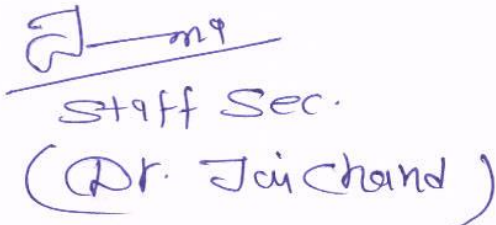 Staff Sec.
(Dr. Jai Chand)